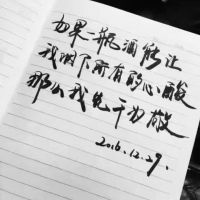 如果一瓶酒能让
我咽下所有的心酸
那么我先干为敬
2016.12.29.